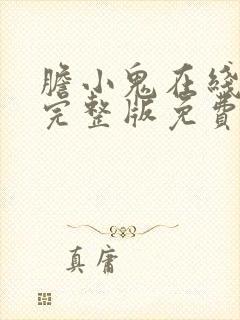 膽小鬼在綫
完整版免費
真庸